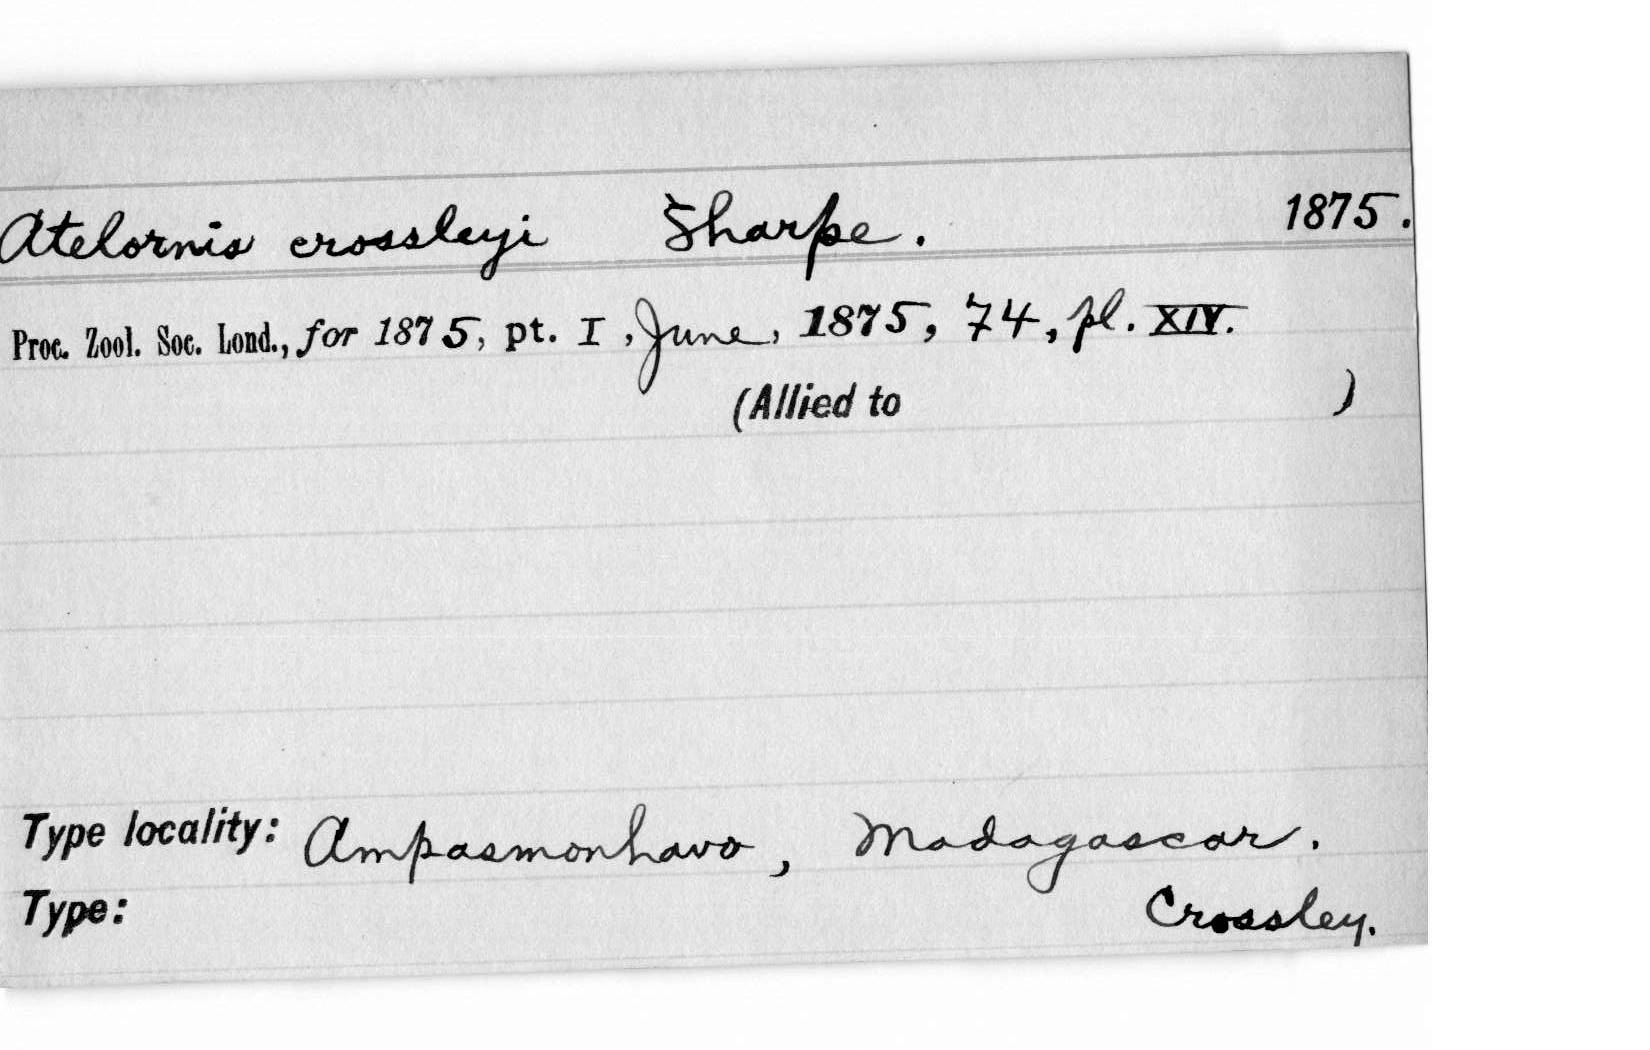 Atelornis crossleyi Sharpe. 1875.
Proc. Zool. Soc. Lond., for 1875, pt. I, June, 1875, 74, pl. XIV.
(Allied to )
Type locality: Ampasmonhavo, Madagascar.
Type: Crossley.